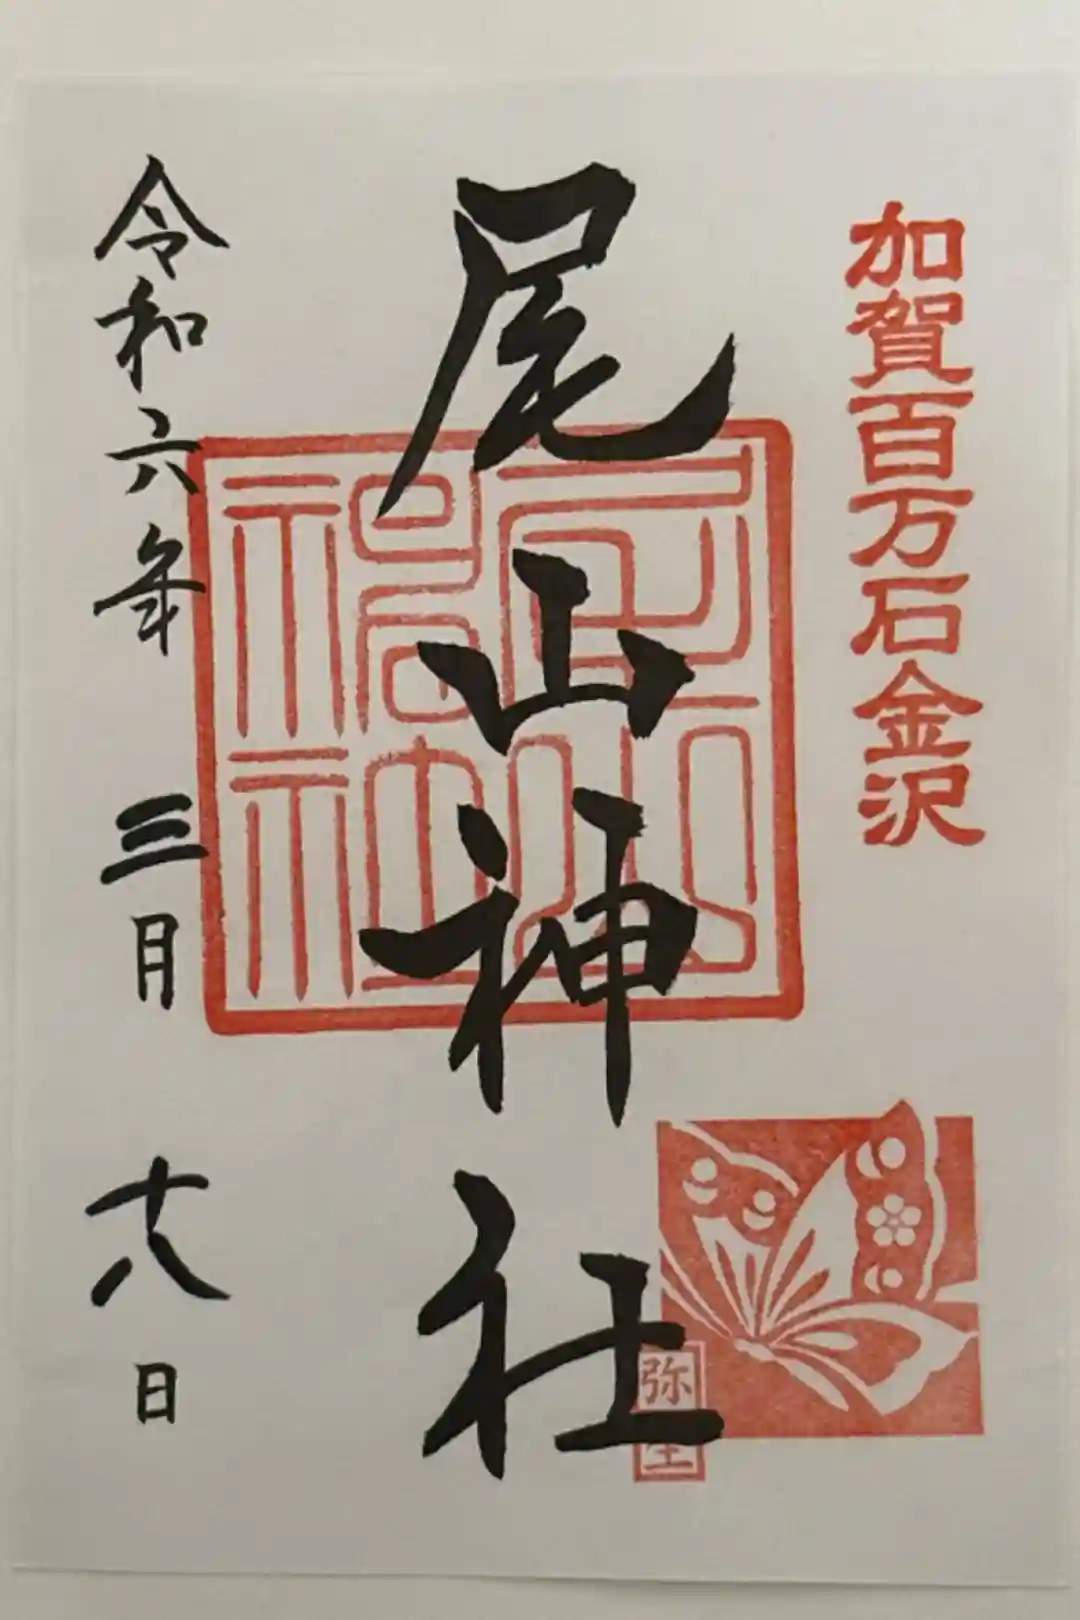 加賀百万石金沢
尾山神社
尾山神社
弥生
令和六年 三月 十八日